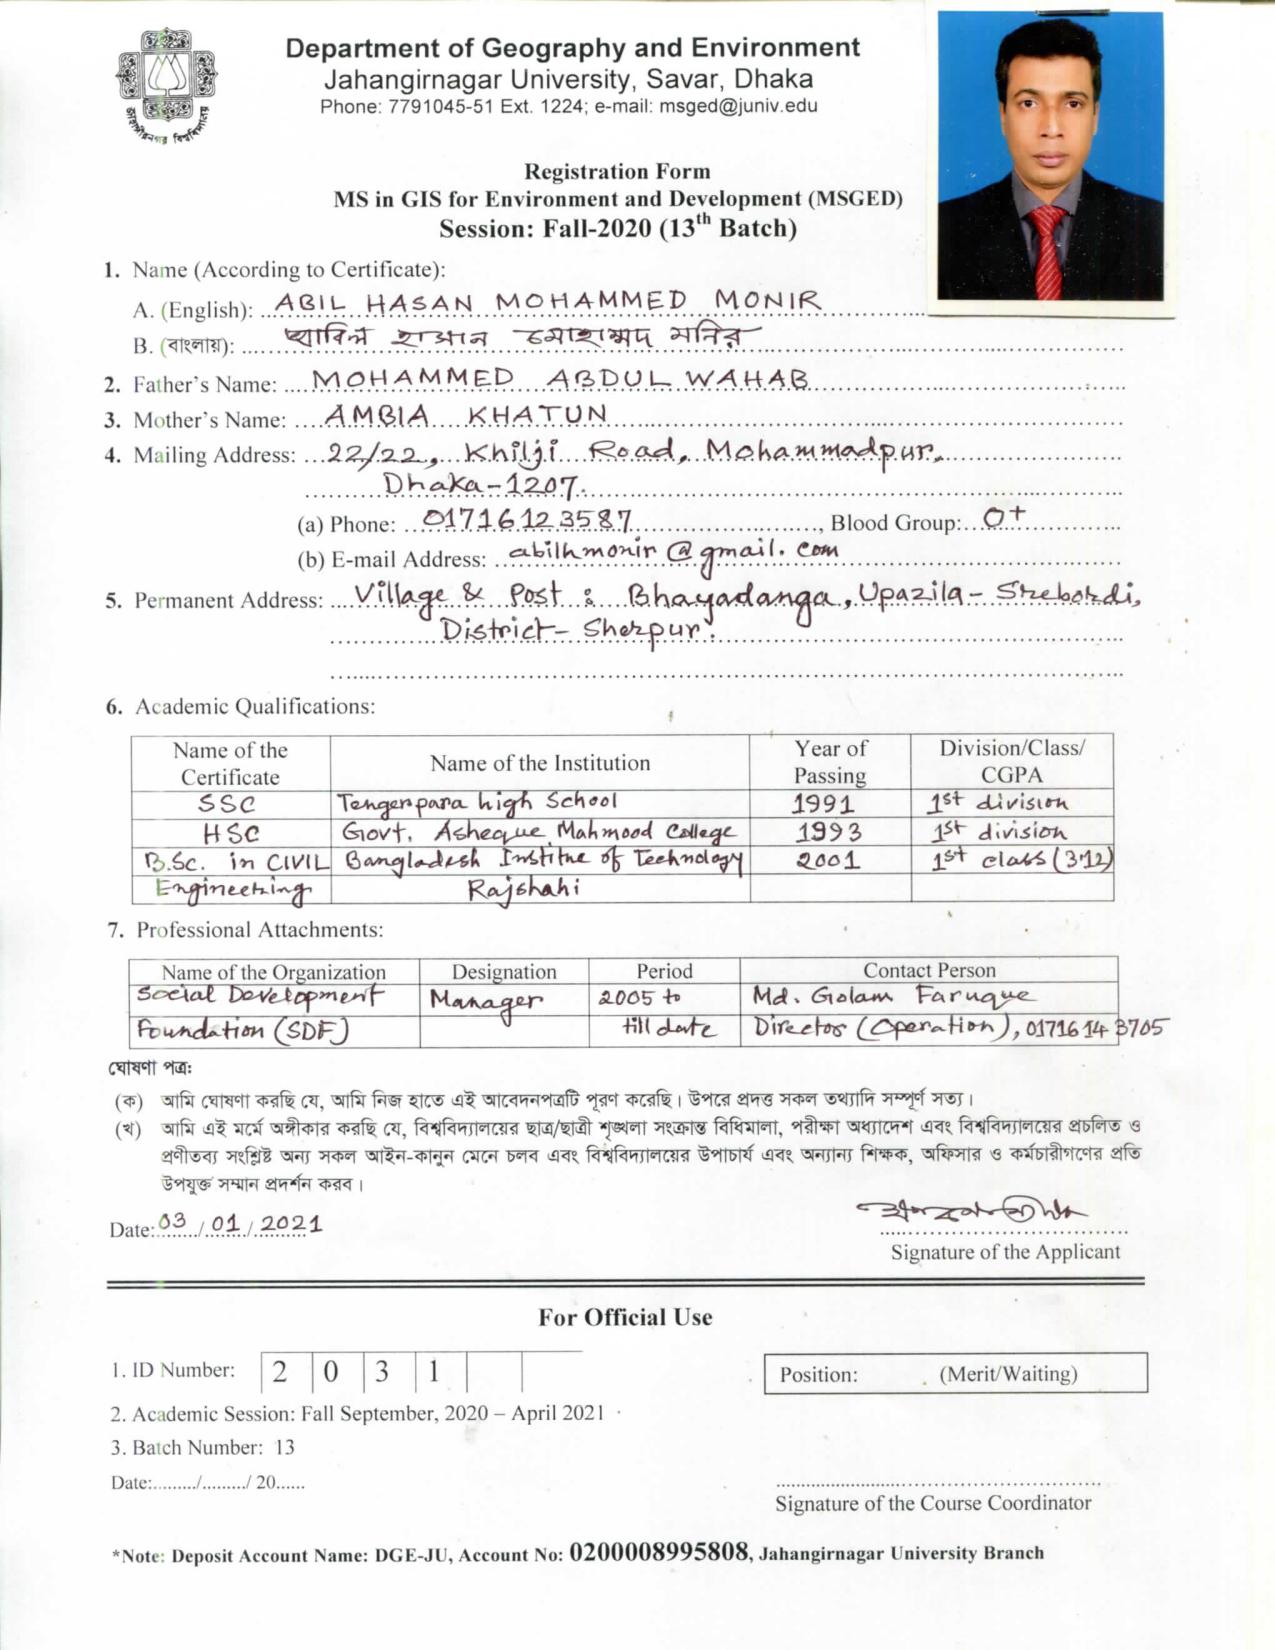 জাহাঙ্গীরনগর বিশ্ববিদ্যালয়
Department of Geography and Environment
Jahangirnagar University, Savar, Dhaka
Phone: 7791045-51 Ext. 1224; e-mail: msged@juniv.edu
Registration Form
MS in GIS for Environment and Development (MSGED)
Session: Fall-2020 (13th Batch)
1. Name (According to Certificate):
A. (English): ABIL HASAN MOHAMMED MONIR
B. (বাংলায়): আবিল হাসান মোহাম্মদ মনির
2. Father's Name: MOHAMMED ABDUL WAHAB
3. Mother's Name: AMBIA KHATUN
4. Mailing Address: 22/22, Khilji Road, Mohammadpur,
Dhaka-1207.
(a) Phone: 01716123587, Blood Group: O+
(b) E-mail Address: abilhmonir@gmail.com
5. Permanent Address: Village & Post : Bhayadanga, Upazila- Srebordi,
District- Sherpur.
6. Academic Qualifications:
Name of the Certificate Name of the Institution Year of Passing Division/Class/ CGPA
SSC Tengerpara high School 1991 1st division
HSC Govt. Asheque Mahmood College 1993 1st division
B.Sc. in CIVIL Bangladesh Institue of Technology 2001 1st class (3.12)
Engineering Rajshahi
7. Professional Attachments:
Name of the Organization Designation Period Contact Person
Social Development Manager 2005 to Md. Golam Faruque
Foundation (SDF) till date Director (Operation), 01716143705
ঘোষণা পত্র:
(ক) আমি ঘোষণা করছি যে, আমি নিজ হাতে এই আবেদনপত্রটি পূরণ করেছি। উপরে প্রদত্ত সকল তথ্যাদি সম্পূর্ণ সত্য।
(খ) আমি এই মর্মে অঙ্গীকার করছি যে, বিশ্ববিদ্যালয়ের ছাত্র/ছাত্রী শৃঙ্খলা সংক্রান্ত বিধিমালা, পরীক্ষা অধ্যাদেশ এবং বিশ্ববিদ্যালয়ের প্রচলিত ও
প্রণীতব্য সংশ্লিষ্ট অন্য সকল আইন-কানুন মেনে চলব এবং বিশ্ববিদ্যালয়ের উপাচার্য এবং অন্যান্য শিক্ষক, অফিসার ও কর্মচারীগণের প্রতি
উপযুক্ত সম্মান প্রদর্শন করব।
Date: 03 / 01 / 2021
Signature of the Applicant
For Official Use
1. ID Number: 2 0 3 1
Position: (Merit/Waiting)
2. Academic Session: Fall September, 2020 – April 2021
3. Batch Number: 13
Date:........./........./ 20......
Signature of the Course Coordinator
*Note: Deposit Account Name: DGE-JU, Account No: 0200008995808, Jahangirnagar University Branch